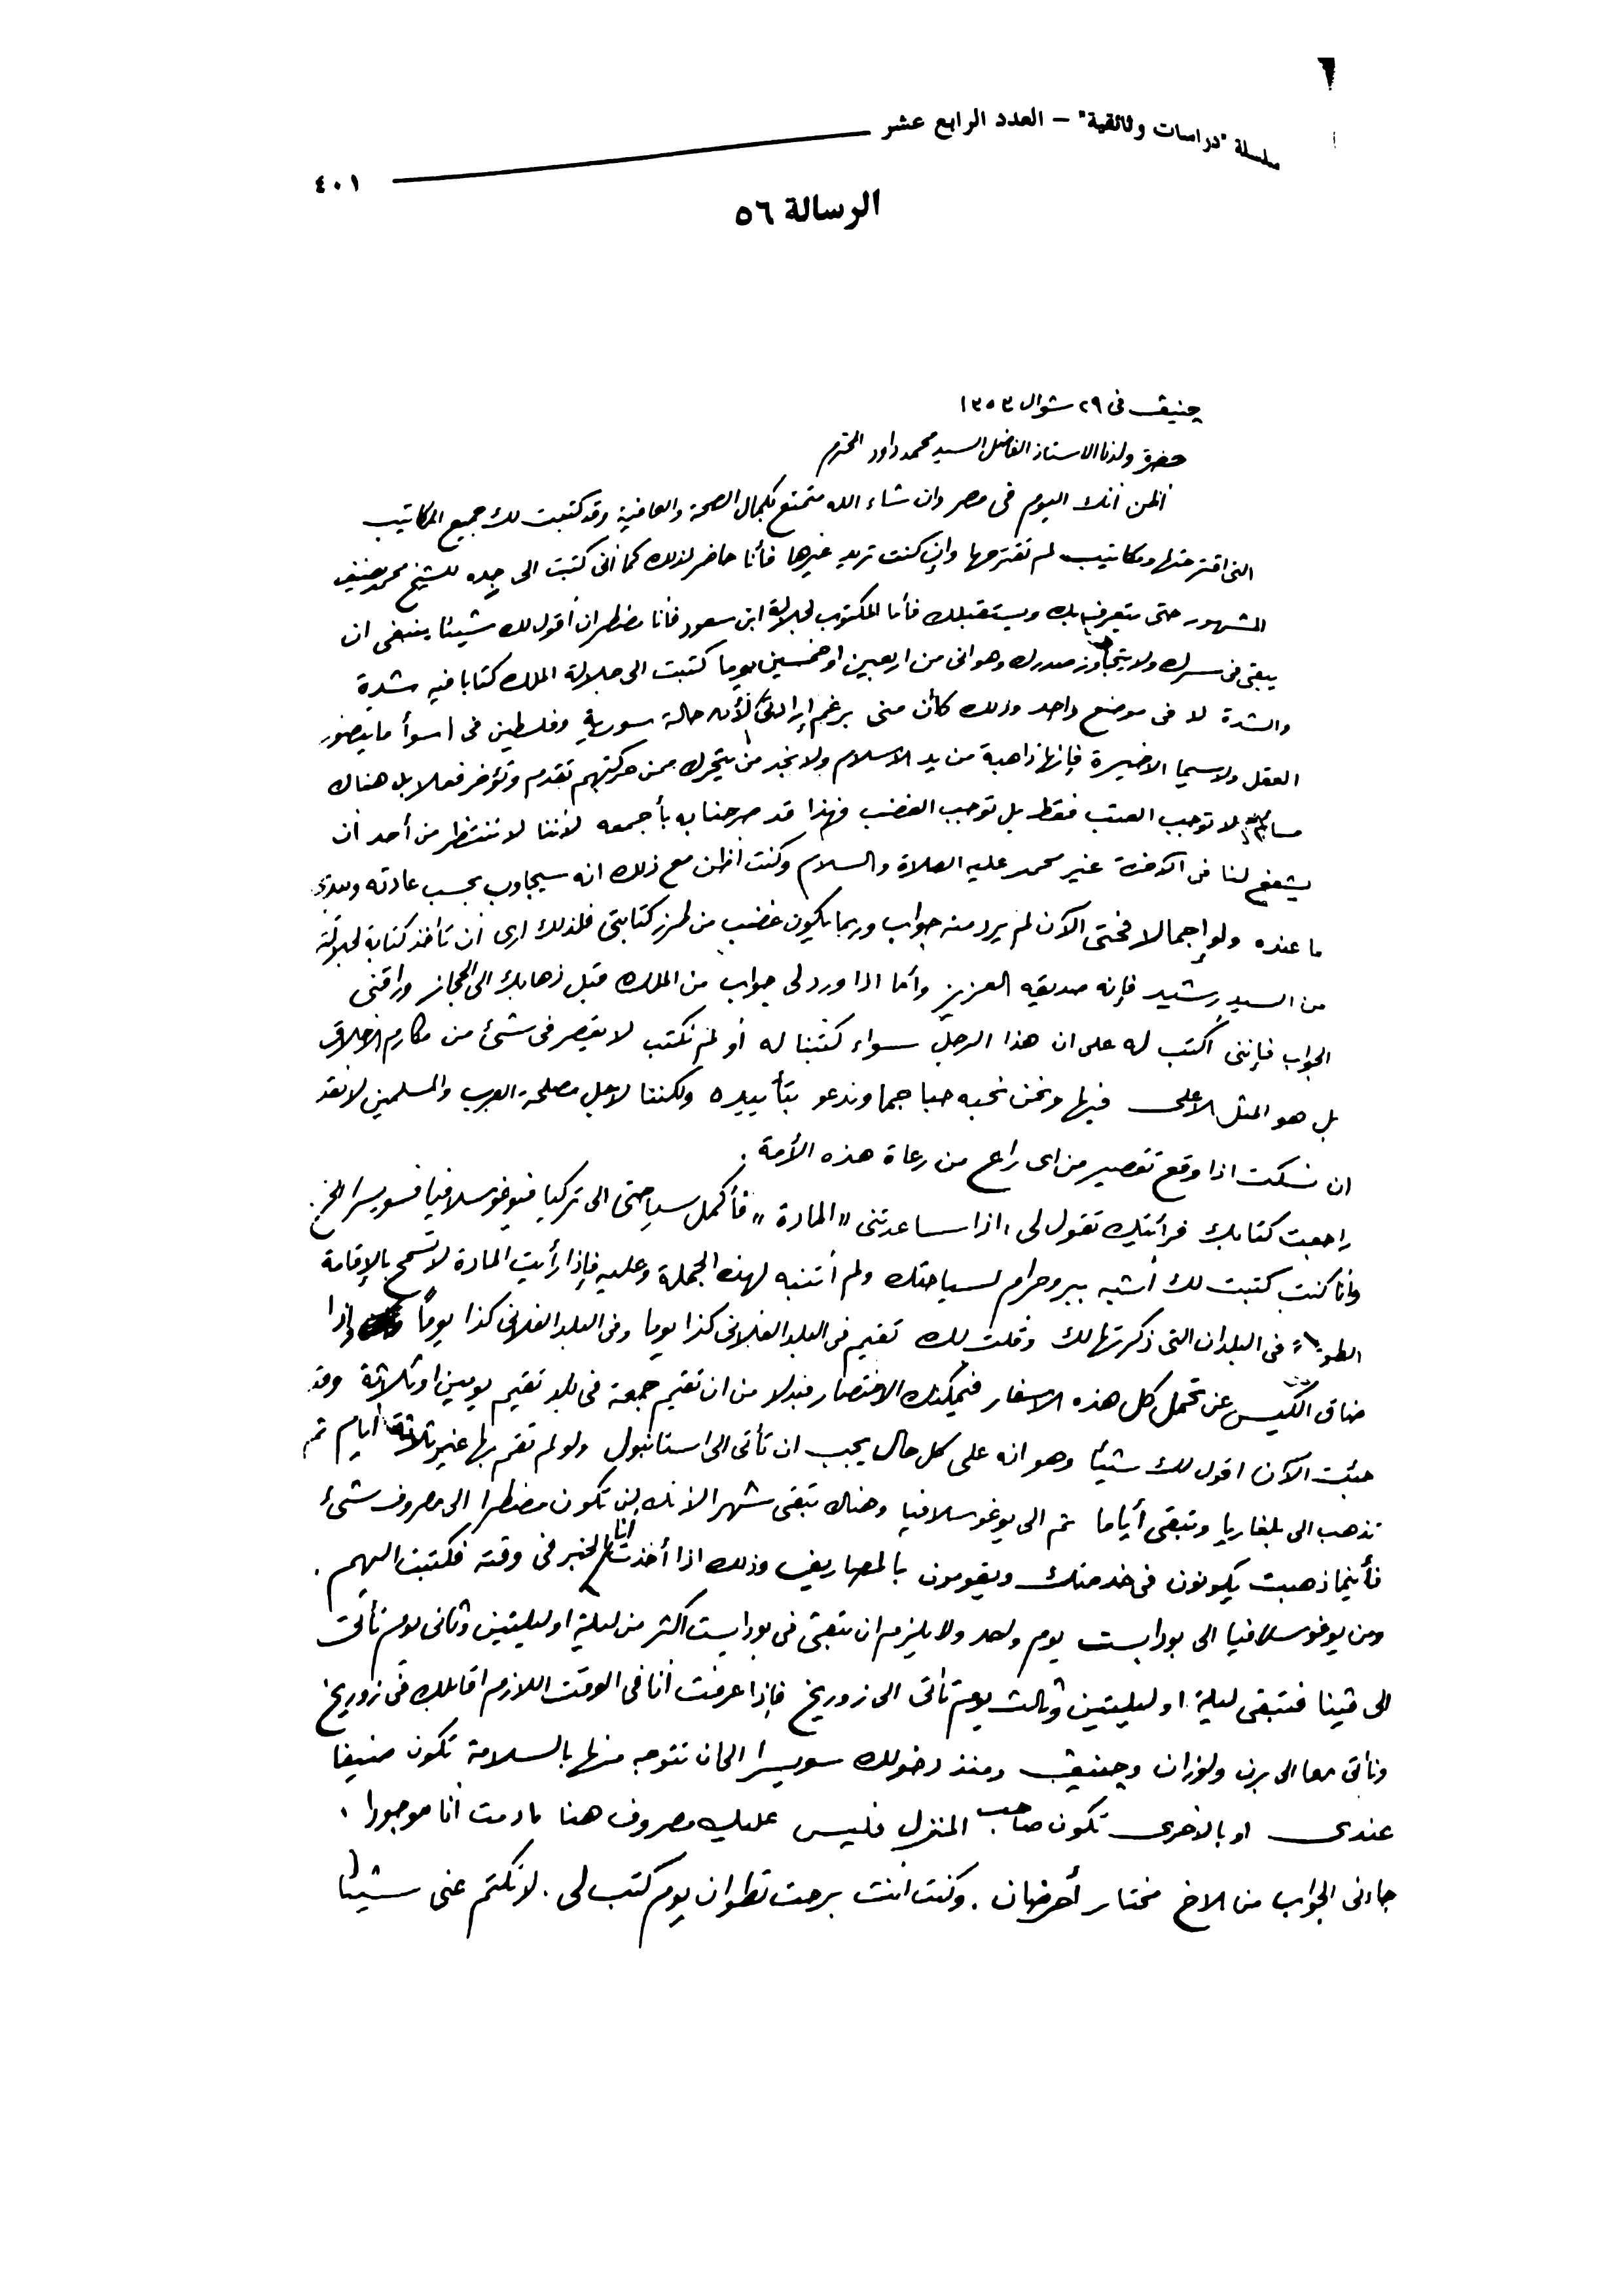 سلسلة "دراسات وثائقية" – العدد الرابع عشر
٤٠١
الرسالة ٥٦
جنيف فى ٢٩ شوال ١٣٥٣
حضرة ولدنا الاستاذ الفاضل السيد محمد داود المحترم
أظن أنك اليوم فى مصر وان شاء الله متمتع بكمال الصحة والعافية وقد كتبت لك جميع المكاتيب
التى اقترحتها ومكاتيب لم تقترحها وإن كنت تريد غيرها فأنا حاضر لذلك كما أنى كتبت الى جده للشيخ محمد نصيف
المشهور حتى يتعرف بك ويستقبلك فأما المكتوب لجلالة ابن سعود فأنا مضطر ان أقول لك شيئا ينبغى ان
يبقى فى سرك ولا يتجاوز صدرك وهو انى من اربعين او خمسين يوما كتبت الى جلالة الملك كتابا فيه شدة
والشدة لا فى موضع واحد وذلك كأن منى برغم إرادتى لأن حالة سورية وفلسطين فى اسوأ ما يتصور
العقل ولا سيما الاخيرة فإنها ذاهبة من يد الاسلام ولا نجد من يتحرك ممن حركتهم تقدم وتؤخر فعلا بل هناك
لا توجب العتب فقط بل توجب الغضب فهذا قد صرحنا به بأجمعه لأننا لا ننتظر من أحد أن
يشفع لنا فى الآخرة غير محمد عليه الصلاة والسلام وكنت أظن مع ذلك انه سيجاوب بحسب عادته
ما عنده ولو إجمالا فحتى الآن لم يرد منه جواب وربما يكون غضب من طرز كتابتى فلذلك ارى أن تأخذ كتابة لجلالته
من السيد رشيد فإنه صديقه العزيز وأما اذا ورد لى جواب من الملك قبل ذهابك الى الحجاز وراقنى
الجواب فإننى اكتب له على ان هذا الرجل سواء كتبنا له أو لم نكتب لا يقصر فى شئ من مكارم الاخلاق
بل هو المثل الاعلى فيها ونحن نحبه حبا جما وندعو بتأييده ولكننا لاجل مصلحة العرب والمسلمين لا نقد
ان نسكت اذا وقع تقصير من اى راع من رعاة هذه الأمة .
راجعت كتابك فرأيتك تقول لى، اذا ساعدتنى «المادة» فأكمل سياحتى الى تركيا فيوغوسلافيا فسويسرا الخ.
وأنا كنت كتبت لك أشبه ببروجرام لسياحتك ولم أتنبه لهذه الجملة وعليه فإذا رأيت المادة لا تسمح بالإقامة
الطويلة فى البلدان التى ذكرتها لك وقلت لك تقيم فى البلد الفلانى كذا يوما وفى البلد الفلانى كذا يوماً واذا
ضاق الكيس عن تحمل كل هذه الاسفار فيمكنك الاختصار فبدلا من ان تقيم جمعة فى بلد تقيم يومين او ثلاثة وقد
جئت الآن اقول لك شيئا وهو انه على كل حال يجب ان تأتى الى استانبول ولو لم تقم بها غير ثلاثة أيام ثم
تذهب الى بلغاريا وتبقى أياما ثم الى يوغوسلافيا وهناك تبقى شهرا لأنك لن تكون مضطرا الى مصروف شئ
فأينما ذهبت يكونون فى خدمتك ويقومون بالمصاريف وذلك اذا أخذت أنا الخبر فى وقته فكتبت اليهم .
ومن يوغوسلافيا الى بودابست يوم واحد ولا يلزم ان تبقى فى بودابست اكثر من ليلة او ليلتين وثانى يوم تأتى
الى ڤينا فتبقى ليلة او ليلتين وثالث يوم تأتى الى زوريخ فإذا عرفت أنا فى الوقت اللازم اقابلك فى زوريخ
ونأتى معا الى برن ولوزان وجنيف ومنذ دخولك سويسرا الى ان تتوجه منها بالسلامة تكون ضيفا
عندى او بالاحرى تكون صاحب المنزل فليس عليك مصروف هنا ما دمت أنا موجودا .
جاءنى الجواب من الاخ مختار أحرضان . وكنت انت برحت تطوان يوم كتب لى . لا تكتم عنى شيئا